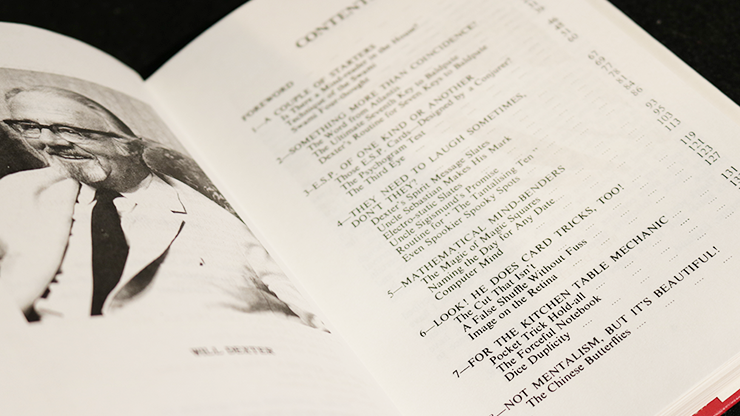 WILL DEXTER
CONTENTS
FOREWORD
1—A COUPLE OF STARTERS
Is There a Mind-reader in the House?
Technique of the Swami
Swami Your-thought
2—SOMETHING MORE THAN COINCIDENCE?
The Word from Atlantis
The Ultimate Seventh Key to Baldpate
Dexter's Routine for Seven Keys to Baldpate
3—E.S.P. OF ONE KIND OR ANOTHER
Those E.S.P. Cards—Designed by a Conjurer?
The Psychogram Test
The Third Eye
4—THEY NEED TO LAUGH SOMETIMES,
DON'T THEY?
Dexter's Spirit Message Slates
Uncle Sebastian Makes His Mark
Electro-static Slates
Uncle Sigismund's Promise
Routine for "The Tantalising Ten"
Even Spookier Spooky Spots
5—MATHEMATICAL MIND-BENDERS
The Magic of Magic Squares
Naming the Day for Any Date
Computer Mind
6—LOOK! HE DOES CARD TRICKS, TOO!
The Cut That Isn't
A False Shuffle Without Fuss
Image on the Retina
7—FOR THE KITCHEN TABLE MECHANIC
Pocket Trick Hold-all
The Forceful Notebook
Dice Duplicity
8—NOT MENTALISM, BUT IT'S BEAUTIFUL!
The Chinese Butterflies
93
95
103
113
119
131